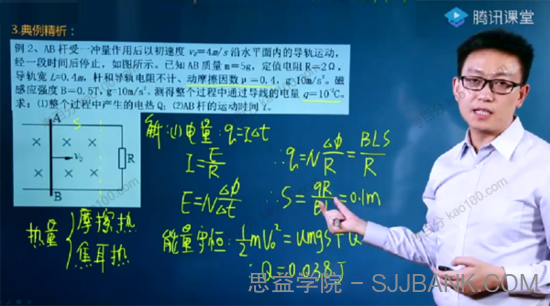 腾讯课堂
3.典例精析：
例 2、AB 杆受一冲量作用后以初速度 v₀=4m/s 沿水平面内的导轨运动，
经一段时间后停止，如图所示。已知 AB 质量 m=5g，定值电阻 R=2Ω，
导轨宽 L=0.4m，杆和导轨电阻不计、动摩擦因数 μ=0.4，g=10m/s²。磁
感应强度 B=0.5T，g=10m/s²。测得整个过程中通过导线的电量 q=10⁻²C。
求：(1)整个过程中产生的电热 Q；(2)AB 杆的运动时间 t。
A
S
v₀
R
B
解:(1)电量: q=IΔt
I=E/R
E=NΔΦ/Δt
∴q=NΔΦ/R=BLS/R
∴S=qR/ =0.1m
热量 { 摩擦热
焦耳热
能量守恒: ½mv₀²=umgs+
∴Q=0.038J
kao100.com
思益学院 - SJJBANK.COM